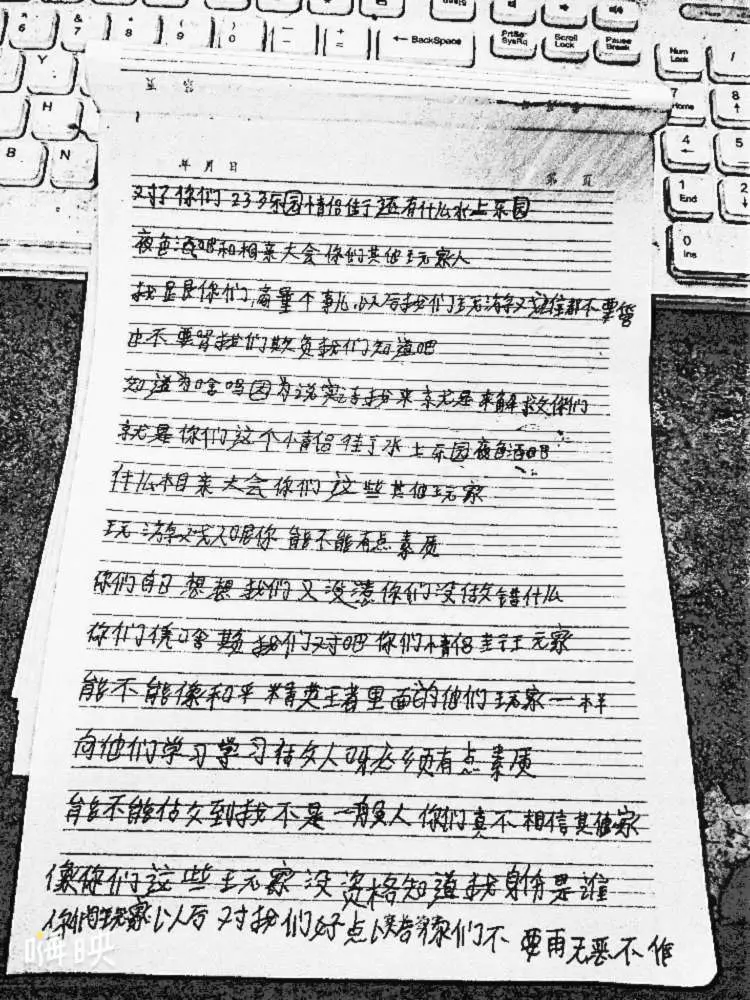 6 & 7 * 8 ( 9 ) 0 — - + = ← BackSpace PrtSc SysRq Scroll Lock Pause Break
Y H B N
Num Lock /
7 Home 8 ↑
4 ← 5
1 End 2
0 Ins
年 月 日 第 页
对了你们233乐园情侣佳了还有什么水上乐园
夜色酒吧和相亲大会你们其他玩家人
我是跟你们商量个事儿以后我们玩游戏你们都不要管
也不要骂我们欺负我们知道吧
知道为啥吗因为说实话我来就是来解救你们
就是你们这个小情侣佳了水上乐园夜色酒吧
什么相亲大会你们这些其他玩家
玩游戏呢你能不能有点素质
你们自己想想我们又没惹你们没做错什么
你们凭啥欺负我们对吧你们情侣玩家
能不能像和平精英王者里面的他们玩家一样
向他们学习学习做人呀必须有点素质
能不能做到我不是一般人你们真不相信其他家
像你们这些玩家没资格知道我身份是谁
你们玩家以后对我们好点你们不要再无恶不作
嗨映